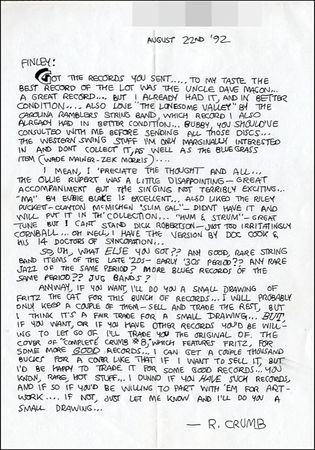 AUGUST 22ND '92
FINLEY:
GOT THE RECORDS YOU SENT.... TO MY TASTE THE
BEST RECORD OF THE LOT WAS THE UNCLE DAVE MACON...
A GREAT RECORD.... BUT I ALREADY HAD IT, AND IN BETTER
CONDITION.... ALSO LOVE "THE LONESOME VALLEY" BY THE
CAROLINA RAMBLERS STRING BAND, WHICH RECORD I ALSO
ALREADY HAD IN BETTER CONDITION... BUBBY, YOU SHOULD'VE
CONSULTED WITH ME BEFORE SENDING ALL THOSE DISCS...
THE WESTERN SWING STUFF I'M ONLY MARGINALLY INTERESTED
IN AND DONT COLLECT IT, AS WELL AS THE BLUEGRASS
ITEM (WADE MAINER-ZEKE MORRIS)....
I MEAN, I 'PRECIATE THE THOUGHT AND ALL...
THE OLLIE RUPERT WAS A LITTLE DISAPPOINTING - GREAT
ACCOMPANIMENT BUT THE SINGING NOT TERRIBLY EXCITING...
"MA" BY EUBIE BLAKE IS EXCELLENT... ALSO LIKED THE RILEY
PUCKETT-CLAYTON McMICHEN "SLIM GAL" - DIDN'T HAVE IT AND
WILL PUT IT IN TH' COLLECTION... "HUM & STRUM" - GREAT
TUNE BUT I CANT STAND DICK ROBERTSON - JUST TOO IRRITATINGLY
CORNBALL... OH WELL, I HAVE THE VERSION BY DOC COOK &
HIS 14 DOCTORS OF SYNCOPATION...
SO, UH, WHAT ELSE YOU GOT?? ANY GOOD, RARE STRING
BAND ITEMS OF THE LATE '20S - EARLY '30S PERIOD?? ANY RARE
JAZZ OF THE SAME PERIOD? MORE BLUES RECORDS OF THE
SAME PERIOD?? JUG BANDS?
ANYWAY, IF YOU WANT, I'LL DO YOU A SMALL DRAWING OF
FRITZ THE CAT FOR THIS BUNCH OF RECORDS... I WILL PROBABLY
ONLY KEEP A COUPLE OF THEM - SELL AND TRADE THE REST, BUT
I THINK IT'S A FAIR TRADE FOR A SMALL DRAWING... BUT,
IF YOU WANT, OR IF YOU HAVE OTHER RECORDS YOU'D BE WILL-
ING TO LET GO OF I'LL TRADE YOU THE ORIGINAL OF THE
COVER OF "COMPLETE CRUMB #3", WHICH FEATURES FRITZ, FOR
SOME MORE GOOD RECORDS... I CAN GET A COUPLE THOUSAND
BUCKS FOR A COVER LIKE THAT IF I WANT TO SELL IT, BUT
I'D BE HAPPY TO TRADE IT FOR SOME GOOD RECORDS... YOU
KNOW, RARE, HOT STUFF... I DUNNO IF YOU HAVE SUCH RECORDS,
AND IF SO IF YOU'D BE WILLING TO PART WITH 'EM FOR ART-
WORK.... IF NOT, JUST LET ME KNOW AND I'LL DO YOU A
SMALL DRAWING...
— R. CRUMB